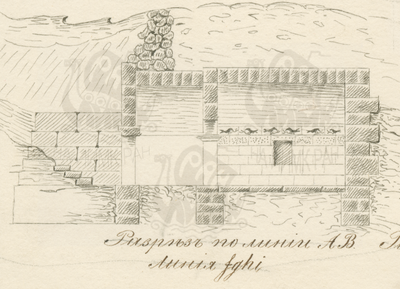 Разрѣзъ по линіи AB
линія fghi